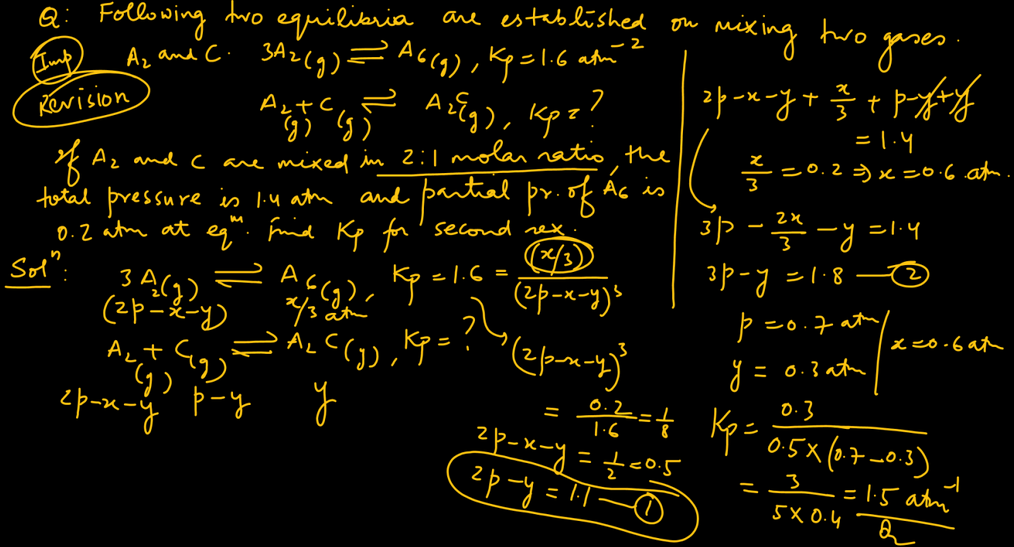 Q: Following two equilibria are established on mixing two gases.
Imp
A2 and C. 3A2(g) ⇌ A6(g), Kp = 1.6 atm^-2
Revision
A2 + C ⇌ A2C(g), Kp = ?
(g) (g)
If A2 and C are mixed in 2:1 molar ratio, the
total pressure is 1.4 atm and partial pr. of A6 is
0.2 atm at eq^m. Find Kp for second rex.
Sol^n:
3A2(g) ⇌ A6(g), Kp = 1.6 = (x/3)/(2p-x-y)^3
(2p-x-y) x/3 atm
A2 + C(g) ⇌ A2C(g), Kp = ?
(g)
2p-x-y p-y y
(2p-x-y)^3
= 0.2/1.6 = 1/8
2p-x-y = 1/2 = 0.5
2p-y = 1.1 — ①
2p-x-y + x/3 + p-y+y
= 1.4
x/3 = 0.2 ⇒ x = 0.6 atm.
3p - 2x/3 - y = 1.4
3p-y = 1.8 — ②
p = 0.7 atm
x = 0.6 atm
y = 0.3 atm
Kp = 0.3/(0.5×(0.7-0.3))
= 3/(5×0.4) = 1.5 atm^-1